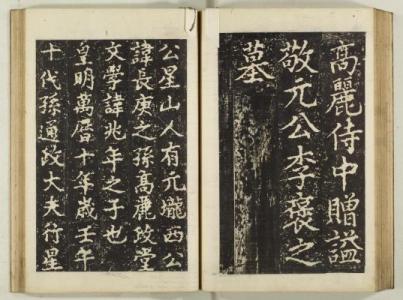 高麗侍中贈謚
敬元公李褒之
墓
公星山人有元壠西公
諱長庚之孫高麗政堂
文學諱兆年之子也
皇明萬曆十年歲壬午
十代孫通政大夫行星